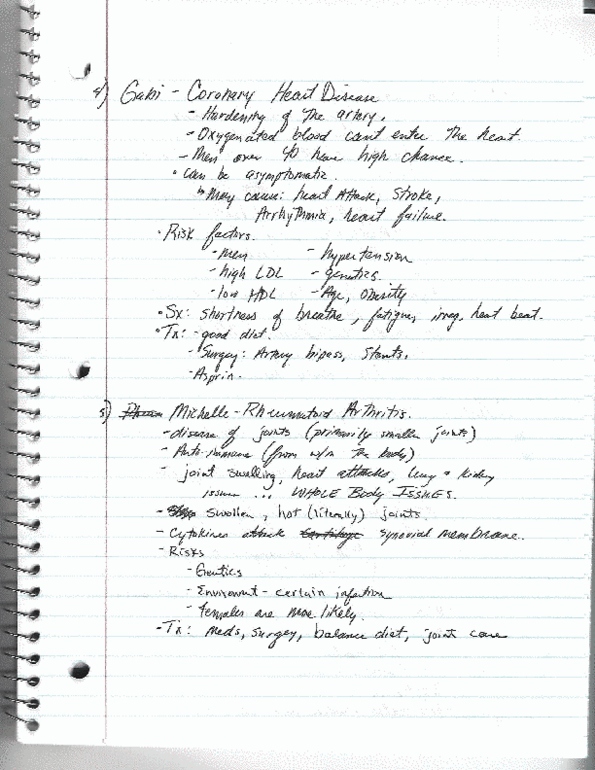 4) Gabi - Coronary Heart Disease
- Hardening of The artery.
- Oxygenated blood can't enter The heart.
- Men over 40 have high chance.
• Can be asymptomatic.
↳ May cause: heart Attack, Stroke,
Arrhythmia, heart failure.
• Risk factors.
- men - hypertension
- high LDL - genetics.
- low HDL - Age, Obesity
• Sx: Shortness of breathe, fatigue, irreg. heat beat.
• Tx: - good diet.
- Surgey: Artery bipass, Stants.
- Asprin.
5) Michelle - Rheumatoid Arthritis.
- disease of joints (primarily smaller joints)
- Auto-immune (from w/in The body)
- joint swelling, heart attacks, lung + kidney
issues ... WHOLE BODY ISSUES.
- swollen, hot (literally) joints.
- Cytokines attack synovial membrane.
- Risks
- Genetics
- Environment - certain infection
- females are more likely.
- Tx: meds, surgey, balance diet, joint care